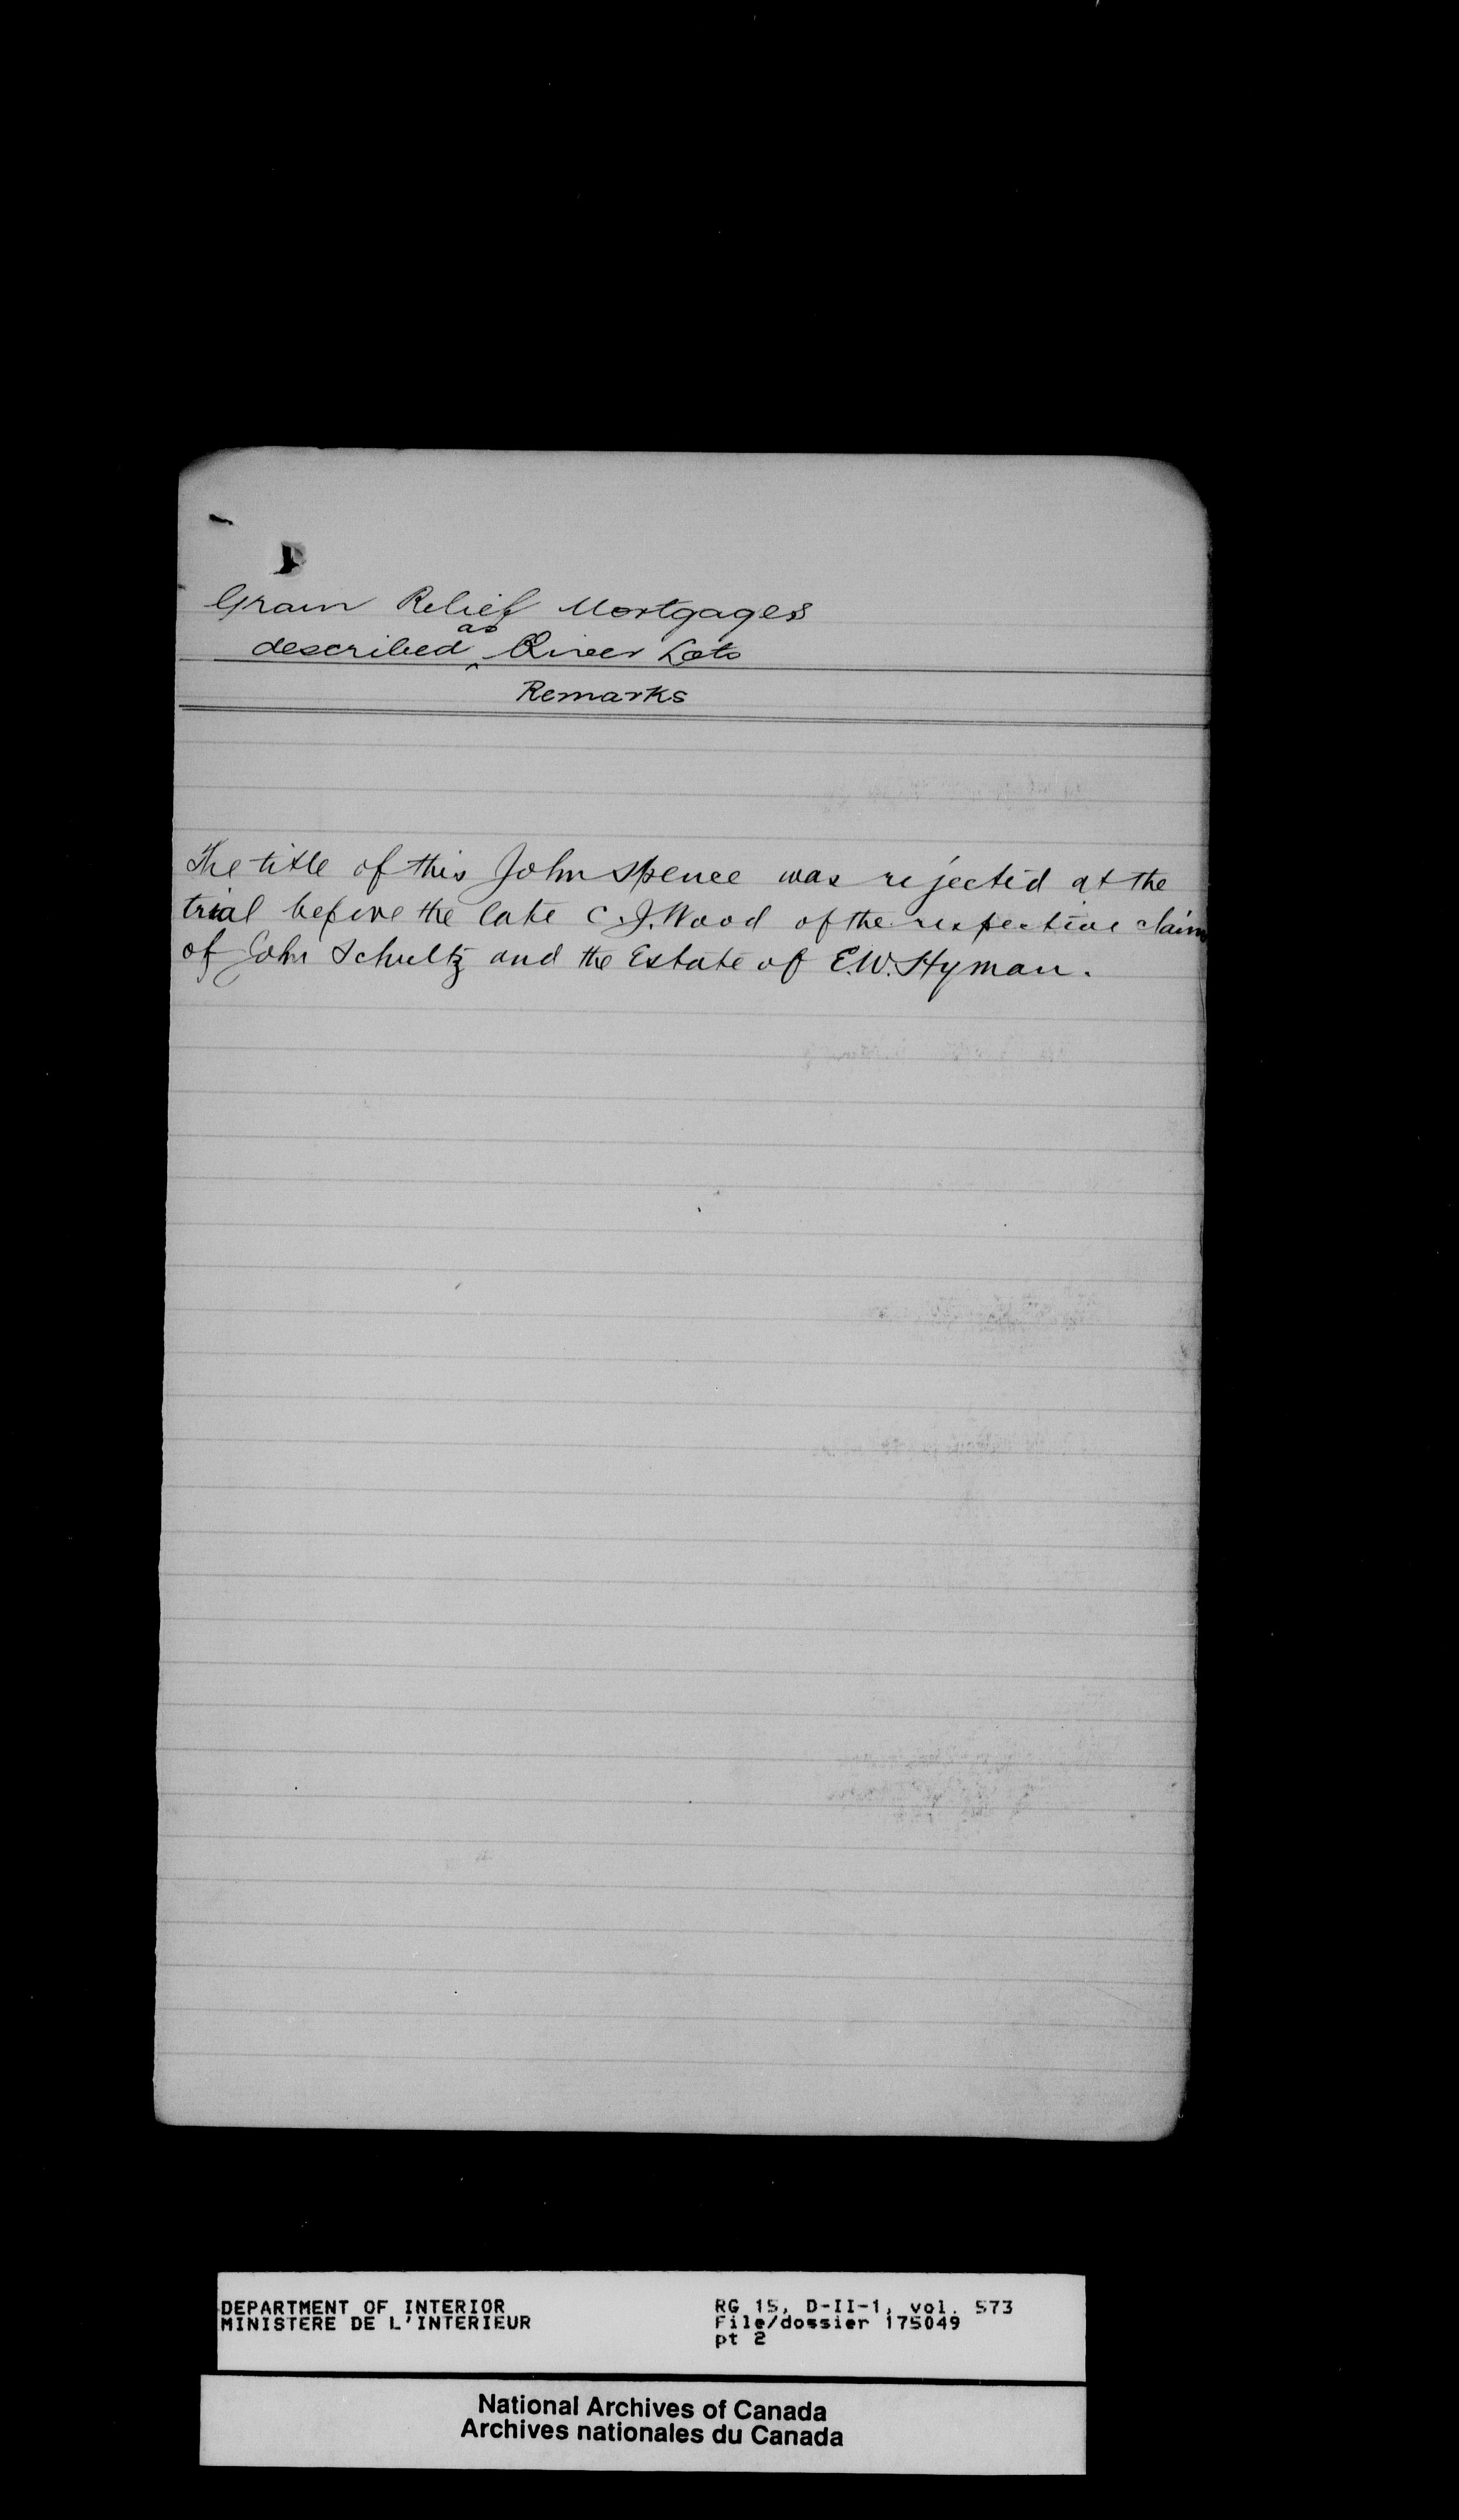 Grain Relief Mortgages
described as River Lots
Remarks
The title of this John Spence was rejected at the
trial before the late C.J. Wood of the respective claim
of John Schultz and the Estate of E.W. Hyman.
DEPARTMENT OF INTERIOR
MINISTERE DE L'INTERIEUR
RG 15, D-II-1, vol. 573
File/dossier 175049
pt 2
National Archives of Canada
Archives nationales du Canada